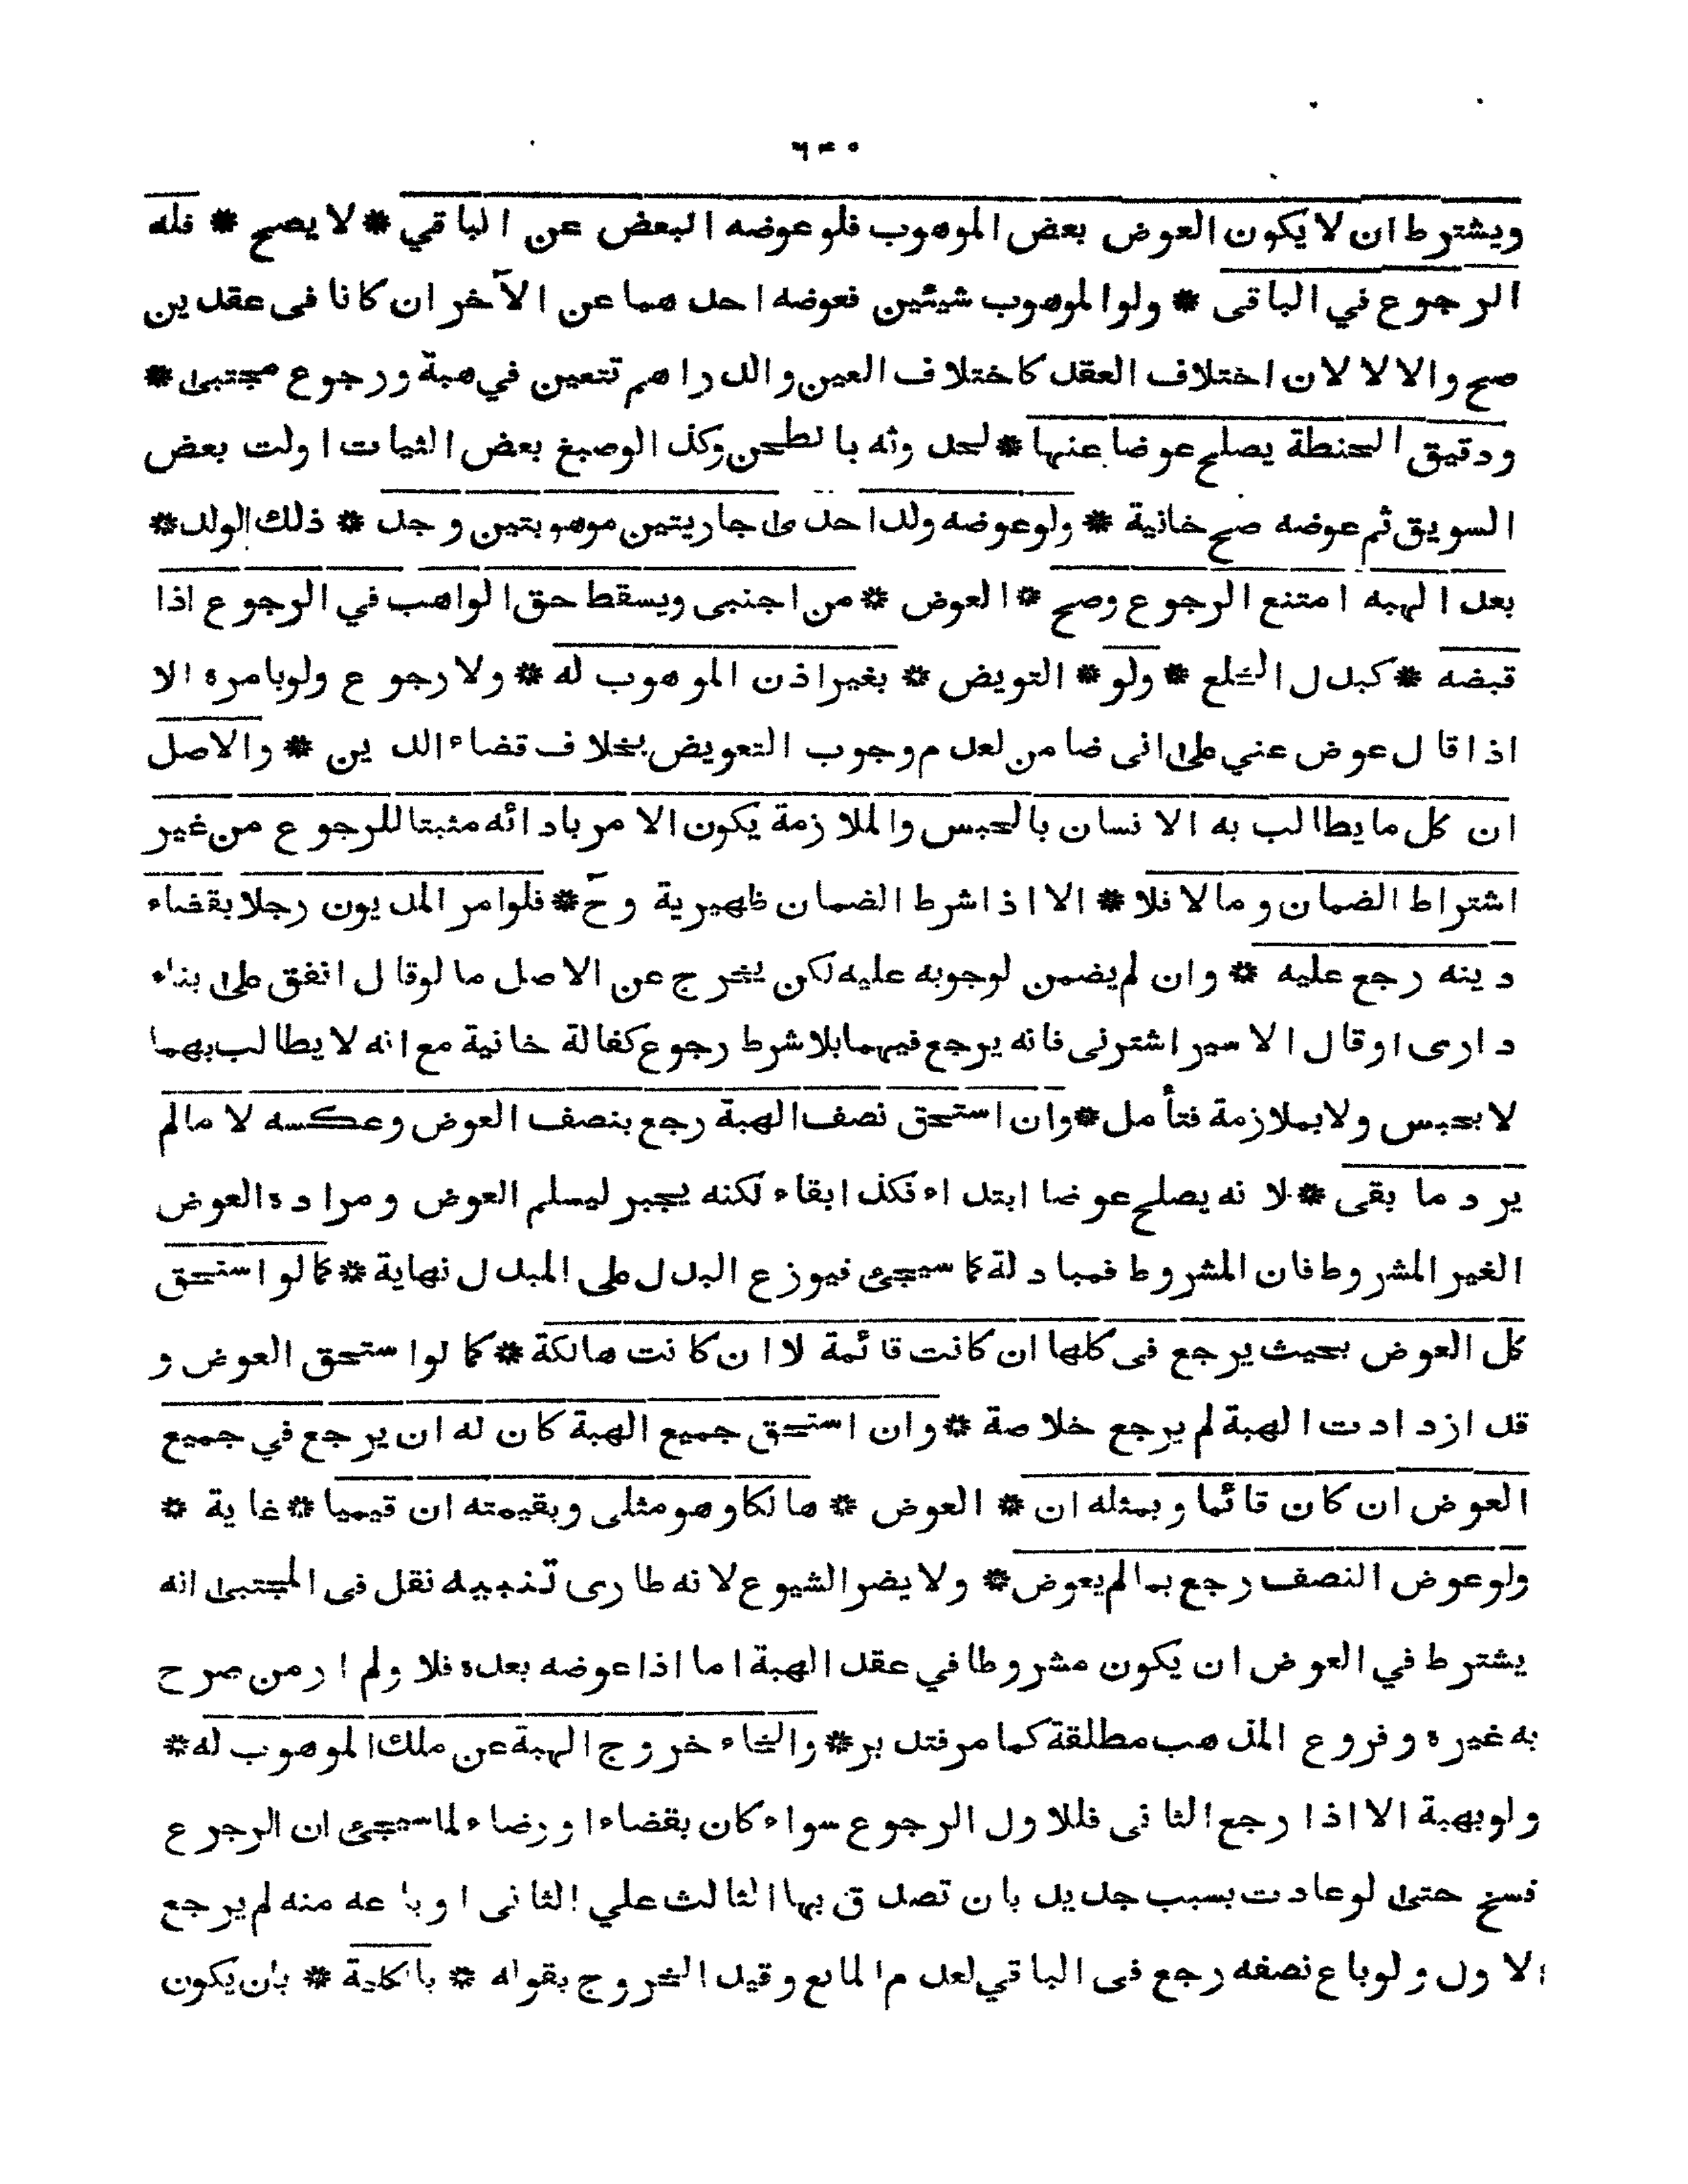 ويشترط ان لا يكون العوض بعض الموهوب فلو عوضه البعض عن الباقي * لا يصح * فله
الرجوع في الباقى * ولو الموهوب شيئين فعوضه احدهما عن الآخر ان كانا فى عقدين
صح والا لا لان اختلاف العقد كاختلاف العين والدراهم تتعين في هبة ورجوع مجتبى *
ودقيق الحنطة يصلح عوضا عنها * لحدوثه بالطحن وكذا لو صبغ بعض الثيات اولت بعض
السويق ثم عوضه صح خانية * ولو عوضه ولد احدى جاريتين موهوبتين وجد * ذلك الولد *
بعد الهبه امتنع الرجوع وصح * العوض * من اجنبى ويسقط حق الواهب في الرجوع اذا
قبضه * كبدل الخلع * ولو * التويض * بغير اذن الموهوب له * ولا رجوع ولو بامره الا
اذا قال عوض عني على انى ضامن لعدم وجوب التعويض بخلاف قضاء الدين * والاصل
ان كل ما يطالب به الانسان بالحبس والملازمة يكون الامر بادائه مثبتا للرجوع من غير
اشتراط الضمان وما لا فلا * الا اذا شرط الضمان ظهيرية وحَ * فلو امر المديون رجلا بقضاء
دينه رجع عليه * وان لم يضمن لوجوبه عليه لكن يخرج عن الاصل ما لو قال انفق على بناء
دارى اوقال الاسير اشترنى فانه يرجع فيهما بلا شرط رجوع كفالة خانية مع انه لا يطالب بهما
لا بحبس ولا بملازمة فتأمل * وان استحق نصف الهبة رجع بنصف العوض وعكسه لا مالم
يرد ما بقى * لانه يصلح عوضا ابتداء فكذا بقاء لكنه يجبر ليسلم العوض ومراده العوض
الغير المشروط فان المشروط فمبادلة كما سيجئ فيوزع البدل على المبدل نهاية * كما لو استحق
كل العوض بحيث يرجع فى كلها ان كانت قائمة لا ان كانت هالكة * كما لو استحق العوض و
قد ازدادت الهبة لم يرجع خلاصة * وان استحق جميع الهبة كان له ان يرجع في جميع
العوض ان كان قائما وبمثله ان * العوض * هالكا وهو مثلى وبقيمته ان قيميا * غاية *
ولو عوض النصف رجع بما لم يعوض * ولا يضر الشيوع لانه طارى تنبيه نقل فى المجتبى انه
يشترط في العوض ان يكون مشروطا في عقد الهبة اما اذا عوضه بعده فلا ولم ار من صرح
به غيره وفروع المذهب مطلقة كما مر فتدبر * والخاء خروج الهبة عن ملك الموهوب له *
ولو بهبة الا اذا رجع الثانى فللاول الرجوع سواء كان بقضاء او رضاء لما سيجئ ان الرجوع
فسخ حتى لو عادت بسبب جديد بان تصدق بها الثالث علي الثانى او باعه منه لم يرجع
الاول ولو باع نصفه رجع فى الباقي لعدم المانع وقيد الخروج بقوله * بالكلية * بان يكون